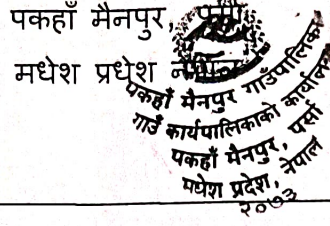 पकहाँ मैनपुर, पर्सा
मधेश प्रधेश नेपाल
पकहाँ मैनपुर गाउँपालिका
गाउँ कार्यपालिकाको कार्यालय
पकहाँ मैनपुर, पर्सा
मधेश प्रदेश, नेपाल
२०७३